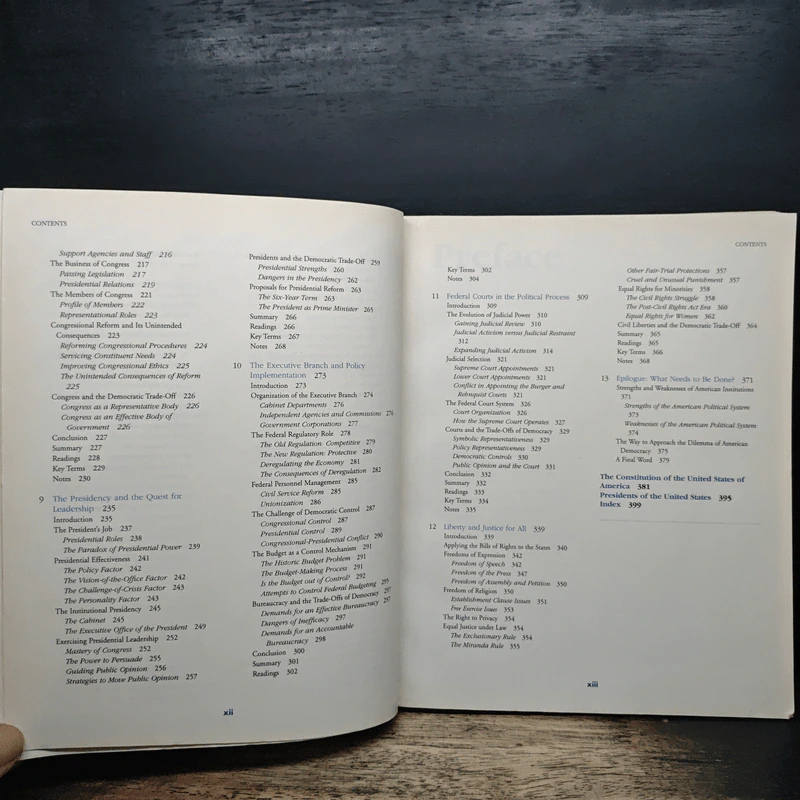 CONTENTS
Support Agencies and Staff 216
The Business of Congress 217
Passing Legislation 217
Presidential Relations 219
The Members of Congress 221
Profile of Members 222
Representational Roles 223
Congressional Reform and Its Unintended
Consequences 223
Reforming Congressional Procedures 224
Servicing Constituent Needs 224
Improving Congressional Ethics 225
The Unintended Consequences of Reform
225
Congress and the Democratic Trade-Off 226
Congress as a Representative Body 226
Congress as an Effective Body of
Government 226
Conclusion 227
Summary 227
Readings 228
Key Terms 229
Notes 230
9 The Presidency and the Quest for
Leadership 235
Introduction 235
The President's Job 237
Presidential Roles 238
The Paradox of Presidential Power 239
Presidential Effectiveness 241
The Policy Factor 242
The Vision-of-the-Office Factor 242
The Challenge-of-Crisis Factor 243
The Personality Factor 243
The Institutional Presidency 245
The Cabinet 245
The Executive Office of the President 249
Exercising Presidential Leadership 252
Mastery of Congress 252
The Power to Persuade 255
Guiding Public Opinion 256
Strategies to Move Public Opinion 257
Presidents and the Democratic Trade-Off 259
Presidential Strengths 260
Dangers in the Presidency 262
Proposals for Presidential Reform 263
The Six-Year Term 263
The President as Prime Minister 265
Summary 266
Readings 266
Key Terms 267
Notes 268
10 The Executive Branch and Policy
Implementation 273
Introduction 273
Organization of the Executive Branch 274
Cabinet Departments 276
Independent Agencies and Commissions 276
Government Corporations 277
The Federal Regulatory Role 278
The Old Regulation: Competitive 279
The New Regulation: Protective 280
Deregulating the Economy 281
The Consequences of Deregulation 282
Federal Personnel Management 285
Civil Service Reform 285
Unionization 286
The Challenge of Democratic Control 287
Congressional Control 287
Presidential Control 289
Congressional-Presidential Conflict 290
The Budget as a Control Mechanism 291
The Historic Budget Problem 291
The Budget-Making Process 291
Is the Budget out of Control? 292
Attempts to Control Federal Budgeting 295
Bureaucracy and the Trade-Offs of Democracy 297
Demands for an Effective Bureaucracy 297
Dangers of Inefficacy 297
Demands for an Accountable
Bureaucracy 298
Conclusion 300
Summary 301
Readings 302
xii
CONTENTS
Key Terms 302
Notes 304
11 Federal Courts in the Political Process 309
Introduction 309
The Evolution of Judicial Power 310
Gaining Judicial Review 310
Judicial Activism versus Judicial Restraint
312
Expanding Judicial Activism 314
Judicial Selection 321
Supreme Court Appointments 321
Lower Court Appointments 321
Conflict in Appointing the Burger and
Rehnquist Courts 321
The Federal Court System 326
Court Organization 326
How the Supreme Court Operates 327
Courts and the Trade-Offs of Democracy 329
Symbolic Representativeness 329
Policy Representativeness 329
Democratic Controls 330
Public Opinion and the Court 331
Conclusion 332
Summary 332
Readings 333
Key Terms 334
Notes 335
12 Liberty and Justice for All 339
Introduction 339
Applying the Bills of Rights to the States 340
Freedoms of Expression 342
Freedom of Speech 342
Freedom of the Press 347
Freedom of Assembly and Petition 350
Freedom of Religion 350
Establishment Clause Issues 351
Free Exercise Issues 353
The Right to Privacy 354
Equal Justice under Law 354
The Exclusionary Rule 354
The Miranda Rule 355
Other Fair-Trial Protections 357
Cruel and Unusual Punishment 357
Equal Rights for Minorities 358
The Civil Rights Struggle 358
The Post-Civil Rights Act Era 360
Equal Rights for Women 362
Civil Liberties and the Democratic Trade-Off 364
Summary 365
Readings 365
Key Terms 366
Notes 368
13 Epilogue: What Needs to Be Done? 371
Strengths and Weaknesses of American Institutions
371
Strengths of the American Political System
373
Weaknesses of the American Political System
374
The Way to Approach the Dilemma of American
Democracy 375
A Final Word 379
The Constitution of the United States of
America 381
Presidents of the United States 395
Index 399
xiii